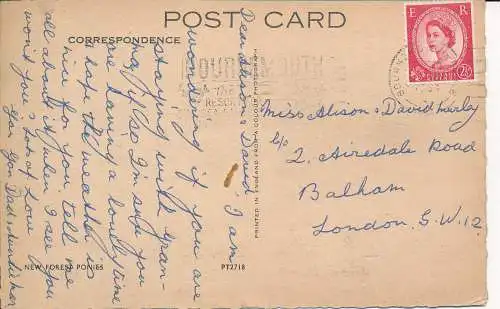 POST CARD
CORRESPONDENCE
Dear Alison & David, I am
wondering if you are
staying with Gran-
ny if so I'm sure you
are having a lovely time
I hope the weather is
nice for you, tell me
all about it when I see you
won't you. Lots of love
NEW FOREST PONIES
PT2718
PRINTED IN ENGLAND FROM A COLOUR PHOTOGRAPH
BOURNEMOUTH
THE
RESORT
E R
POSTAGE
REVENUE
2½D
Miss Alison & David Harley
c/o
2, Airedale Road
Balham
London. S.W.12.